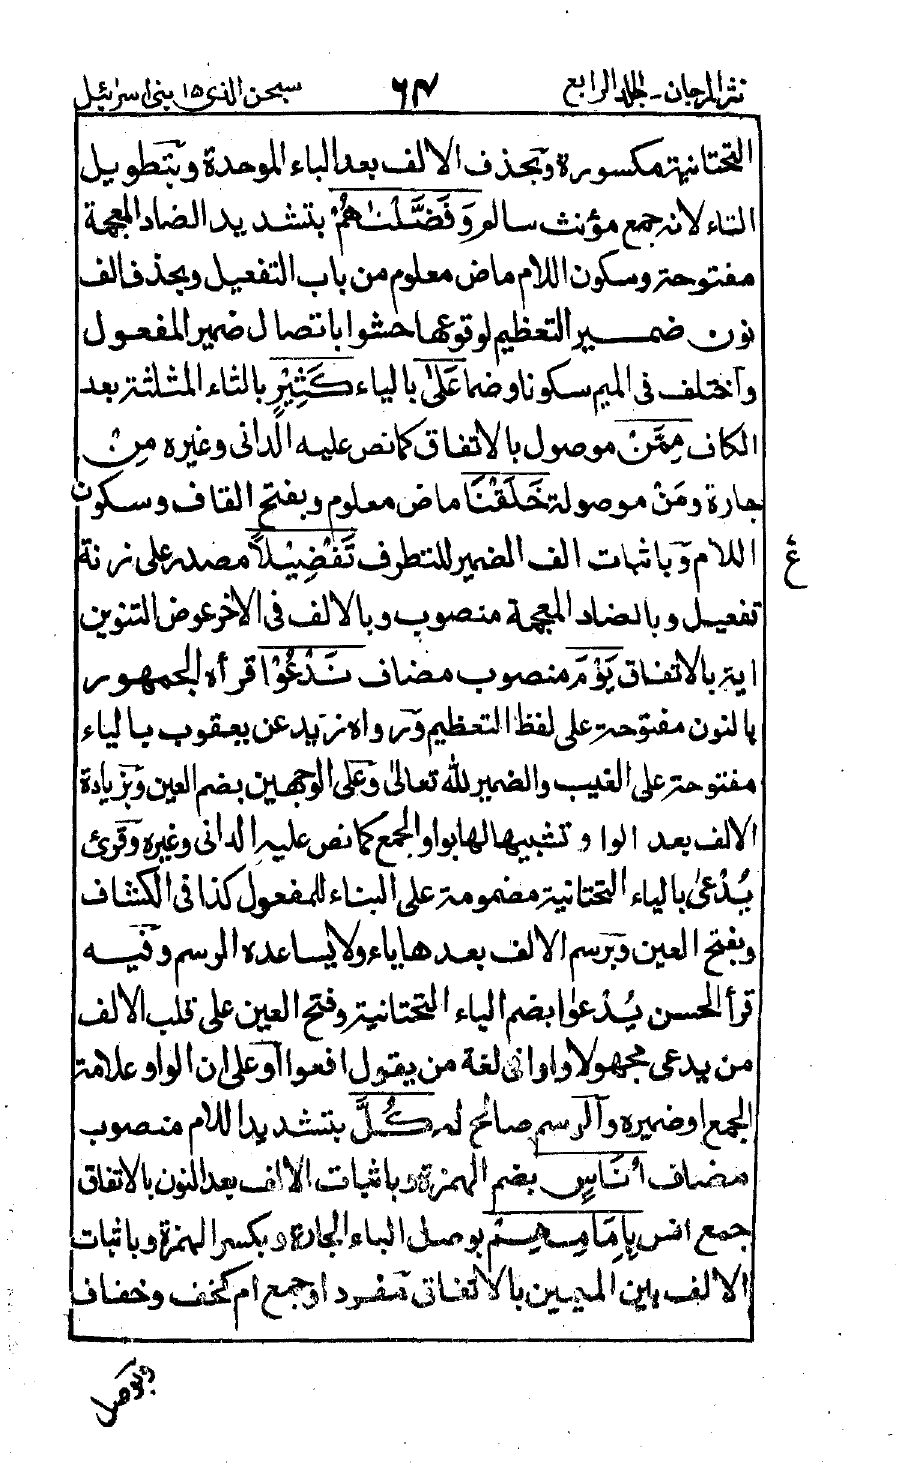 نثر المرجان - الجلد الرابع ٦٣ سبحن الذی ۱۵ بنی اسرائیل
التحتانیة مکسورة وبحذف الالف بعد الباء الموحدة وبتطویل
التاء لانه جمع مؤنث سالم وَفَضَّلْنٰهُمْ بتشدید الضاد المعجمة
مفتوحة وسکون اللام ماض معلوم من باب التفعیل وبحذف الف
نون ضمیر التعظیم لوقوعها حشوا باتصال ضمیر المفعول
واختلف فی المیم سکونا وضما عَلٰی بالیاء کَثِیْرٍ بالثاء المثلثة بعد
الکاف مِمَّنْ موصول بالاتفاق کما نص علیه الدانی وغیره مِنْ
جارة ومَنْ موصولة خَلَقْنَا ماض معلوم وبفتح القاف وسکون
اللام وباثبات الف الضمیر للتطرف تَفْضِیْلًا مصدر علی زنة
تفعیل وبالضاد المعجمة منصوب وبالالف فی الاخر عوض التنوین
ایة بالاتفاق یَوْمَ منصوب مضاف نَدْعُوْا قرأه الجمهور
بالنون مفتوحة علی لفظ التعظیم ورواه زید عن یعقوب بالیاء
مفتوحة علی الغیب والضمیر لله تعالیٰ وعلی الوجهین بضم العین وبزیادة
الالف بعد الواو تشبیها لها بواو الجمع کما نص علیه الدانی وغیره وقرئ
یُدْعیٰ بالیاء التحتانیة مضمومة علی البناء للمفعول کذا فی الکشاف
وبفتح العین وبرسم الالف بعدها یاء ولا یساعده الرسم وفیه
قرأ الحسن یُدْعَوا بضم الیاء التحتانیة وفتح العین علی قلب الالف
من یدعی مجهولا واوا فی لغة من یقول افعوا او علی ان الواو علامة
الجمع او ضمیره والرسم صالح له کُلَّ بتشدید اللام منصوب
مضاف اُنَاسٍ بضم الهمزة وباثبات الالف بعد النون بالاتفاق
جمع انس بِاِمَامِهِمْ بوصل الباء الجارة وبکسر الهمزة وباثبات
الالف بین المیمین بالاتفاق مفرد او جمع ام کخف وخفاف
وبوصل
ع